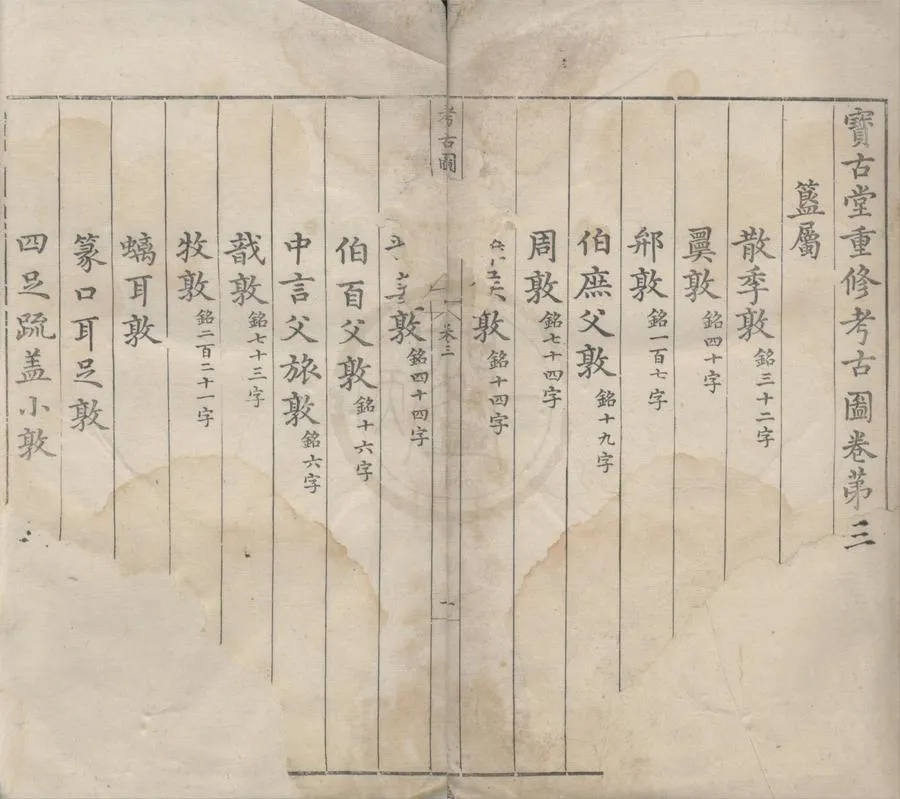 寶古堂重修考古圖卷第三
簋屬
散季敦 銘三十二字
𢍰敦 銘四十字
䢵敦 銘一百七字
伯庶父敦 銘十九字
周敦 銘七十四字
敦 銘十四字
考古圖 卷三 一
敦 銘四十四字
伯百父敦 銘十六字
中言父旅敦 銘六字
敦 銘七十三字
牧敦 銘二百二十一字
螭耳敦
篆口耳足敦
四足疏盖小敦